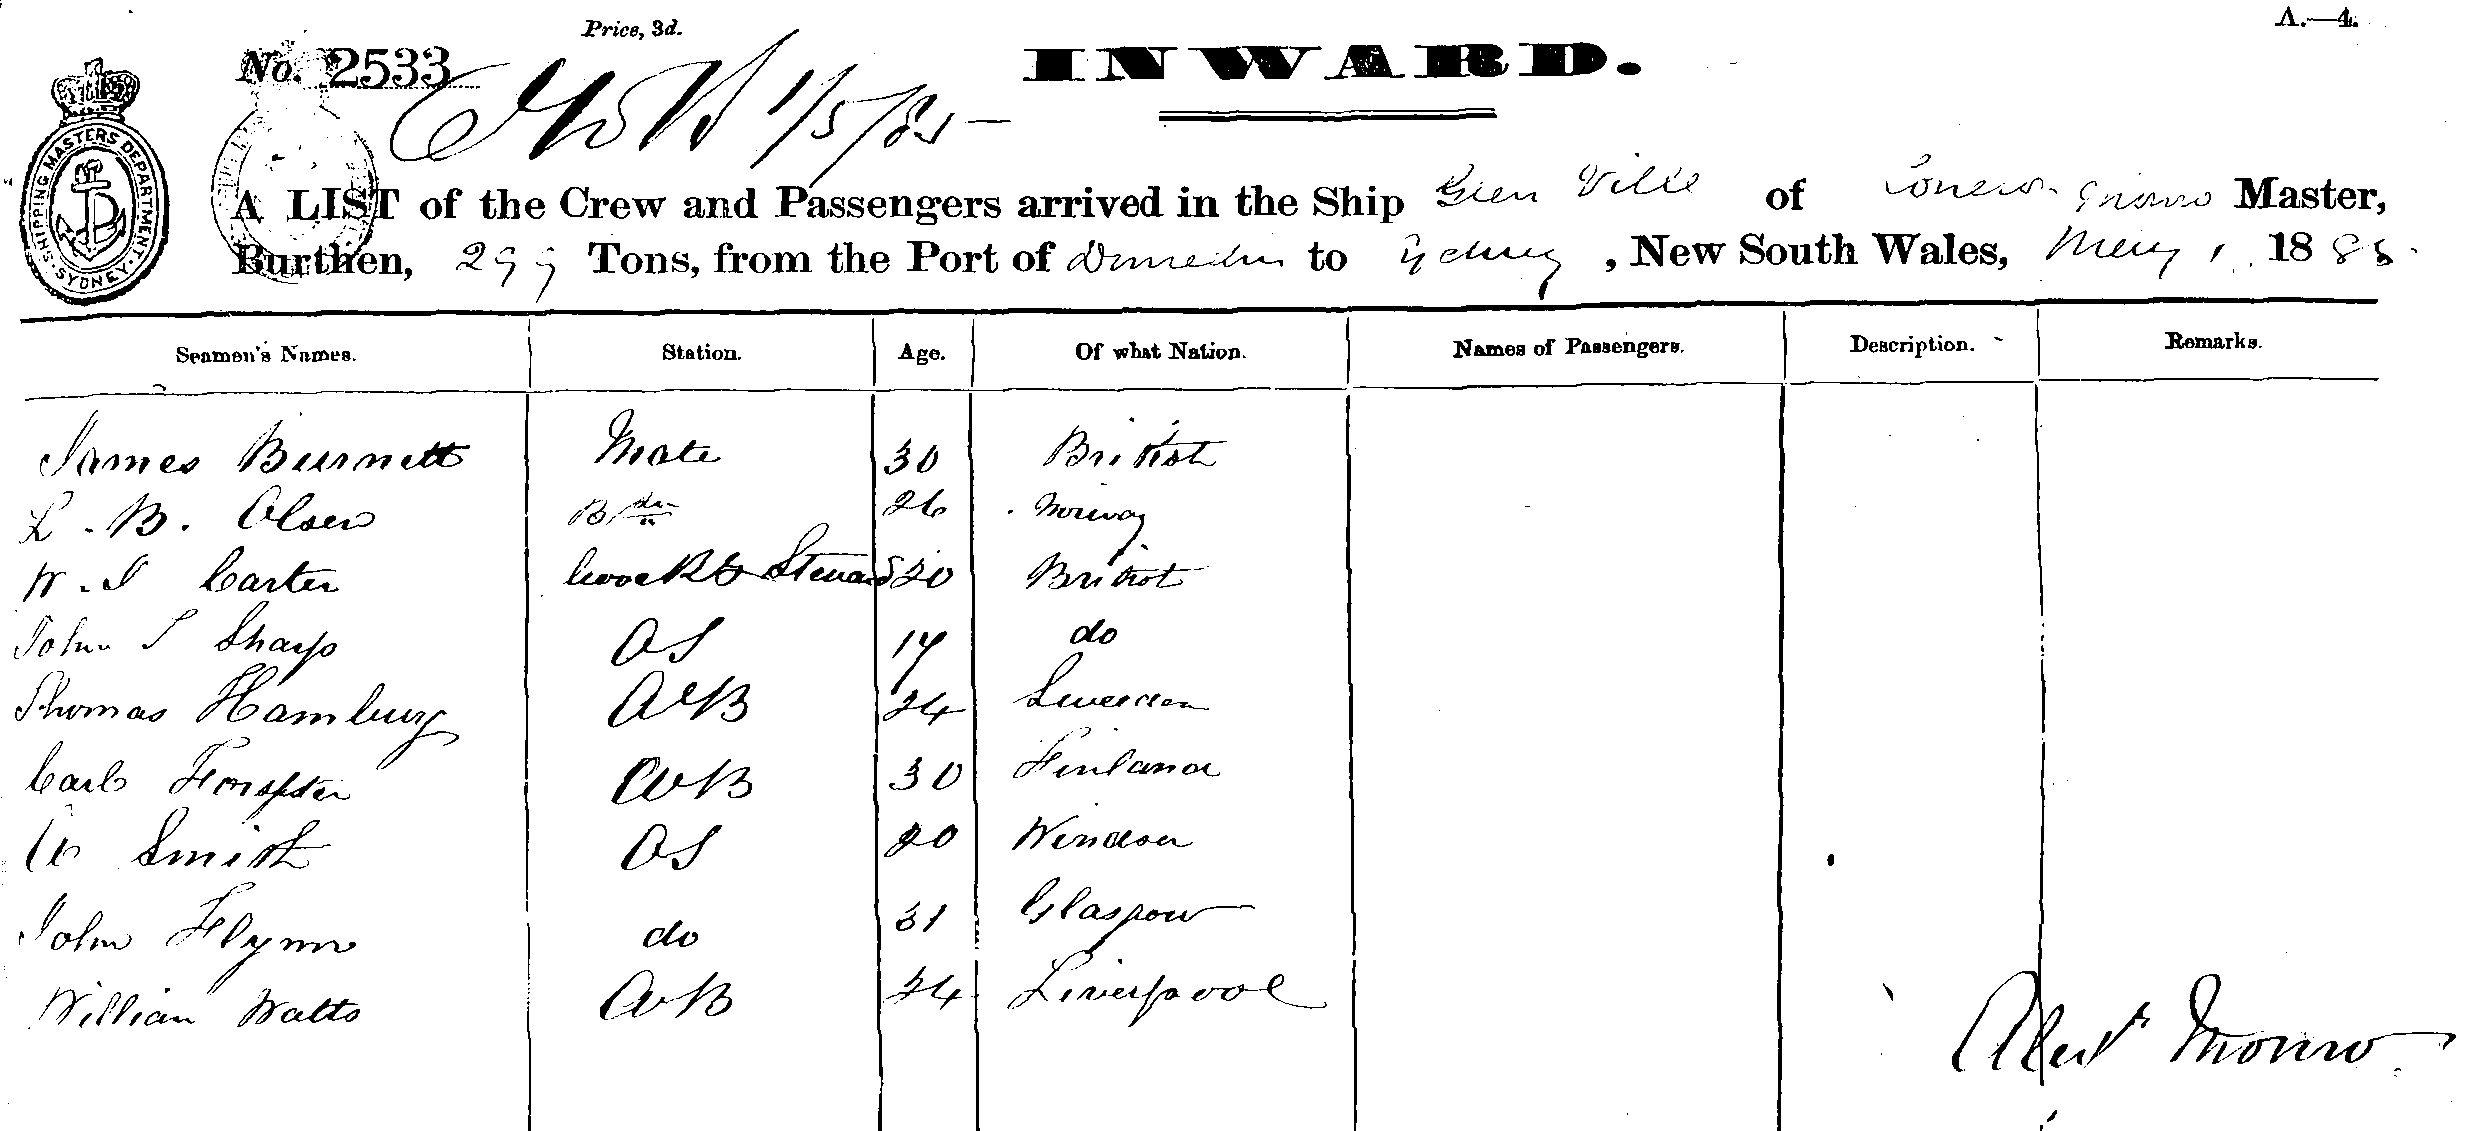 Price, 3d.
A.—4.
No. 2533
INWARD.
1/5/85
SHIPPING MASTERS DEPARTMENT. SYDNEY.
A LIST of the Crew and Passengers arrived in the Ship Glen Ville of Monro Master,
Burthen, 299 Tons, from the Port of Dunedin to Sydney, New South Wales, May 1 1885
Seamen's Names. Station. Age. Of what Nation. Names of Passengers. Description. Remarks.
James Burnett Mate 30 British
L. B. Olsen 26 Norway
W. J Carter Cook & Steward 20 British
John S Sharp OS 17 do
Thomas Hamburg AB 24 Sweeden
Carl AB 30 Finland
Smith OS 20 Windsor
John Flynn do 31 Glasgow
William Watts AB 24 Liverpool
Alexr Monro